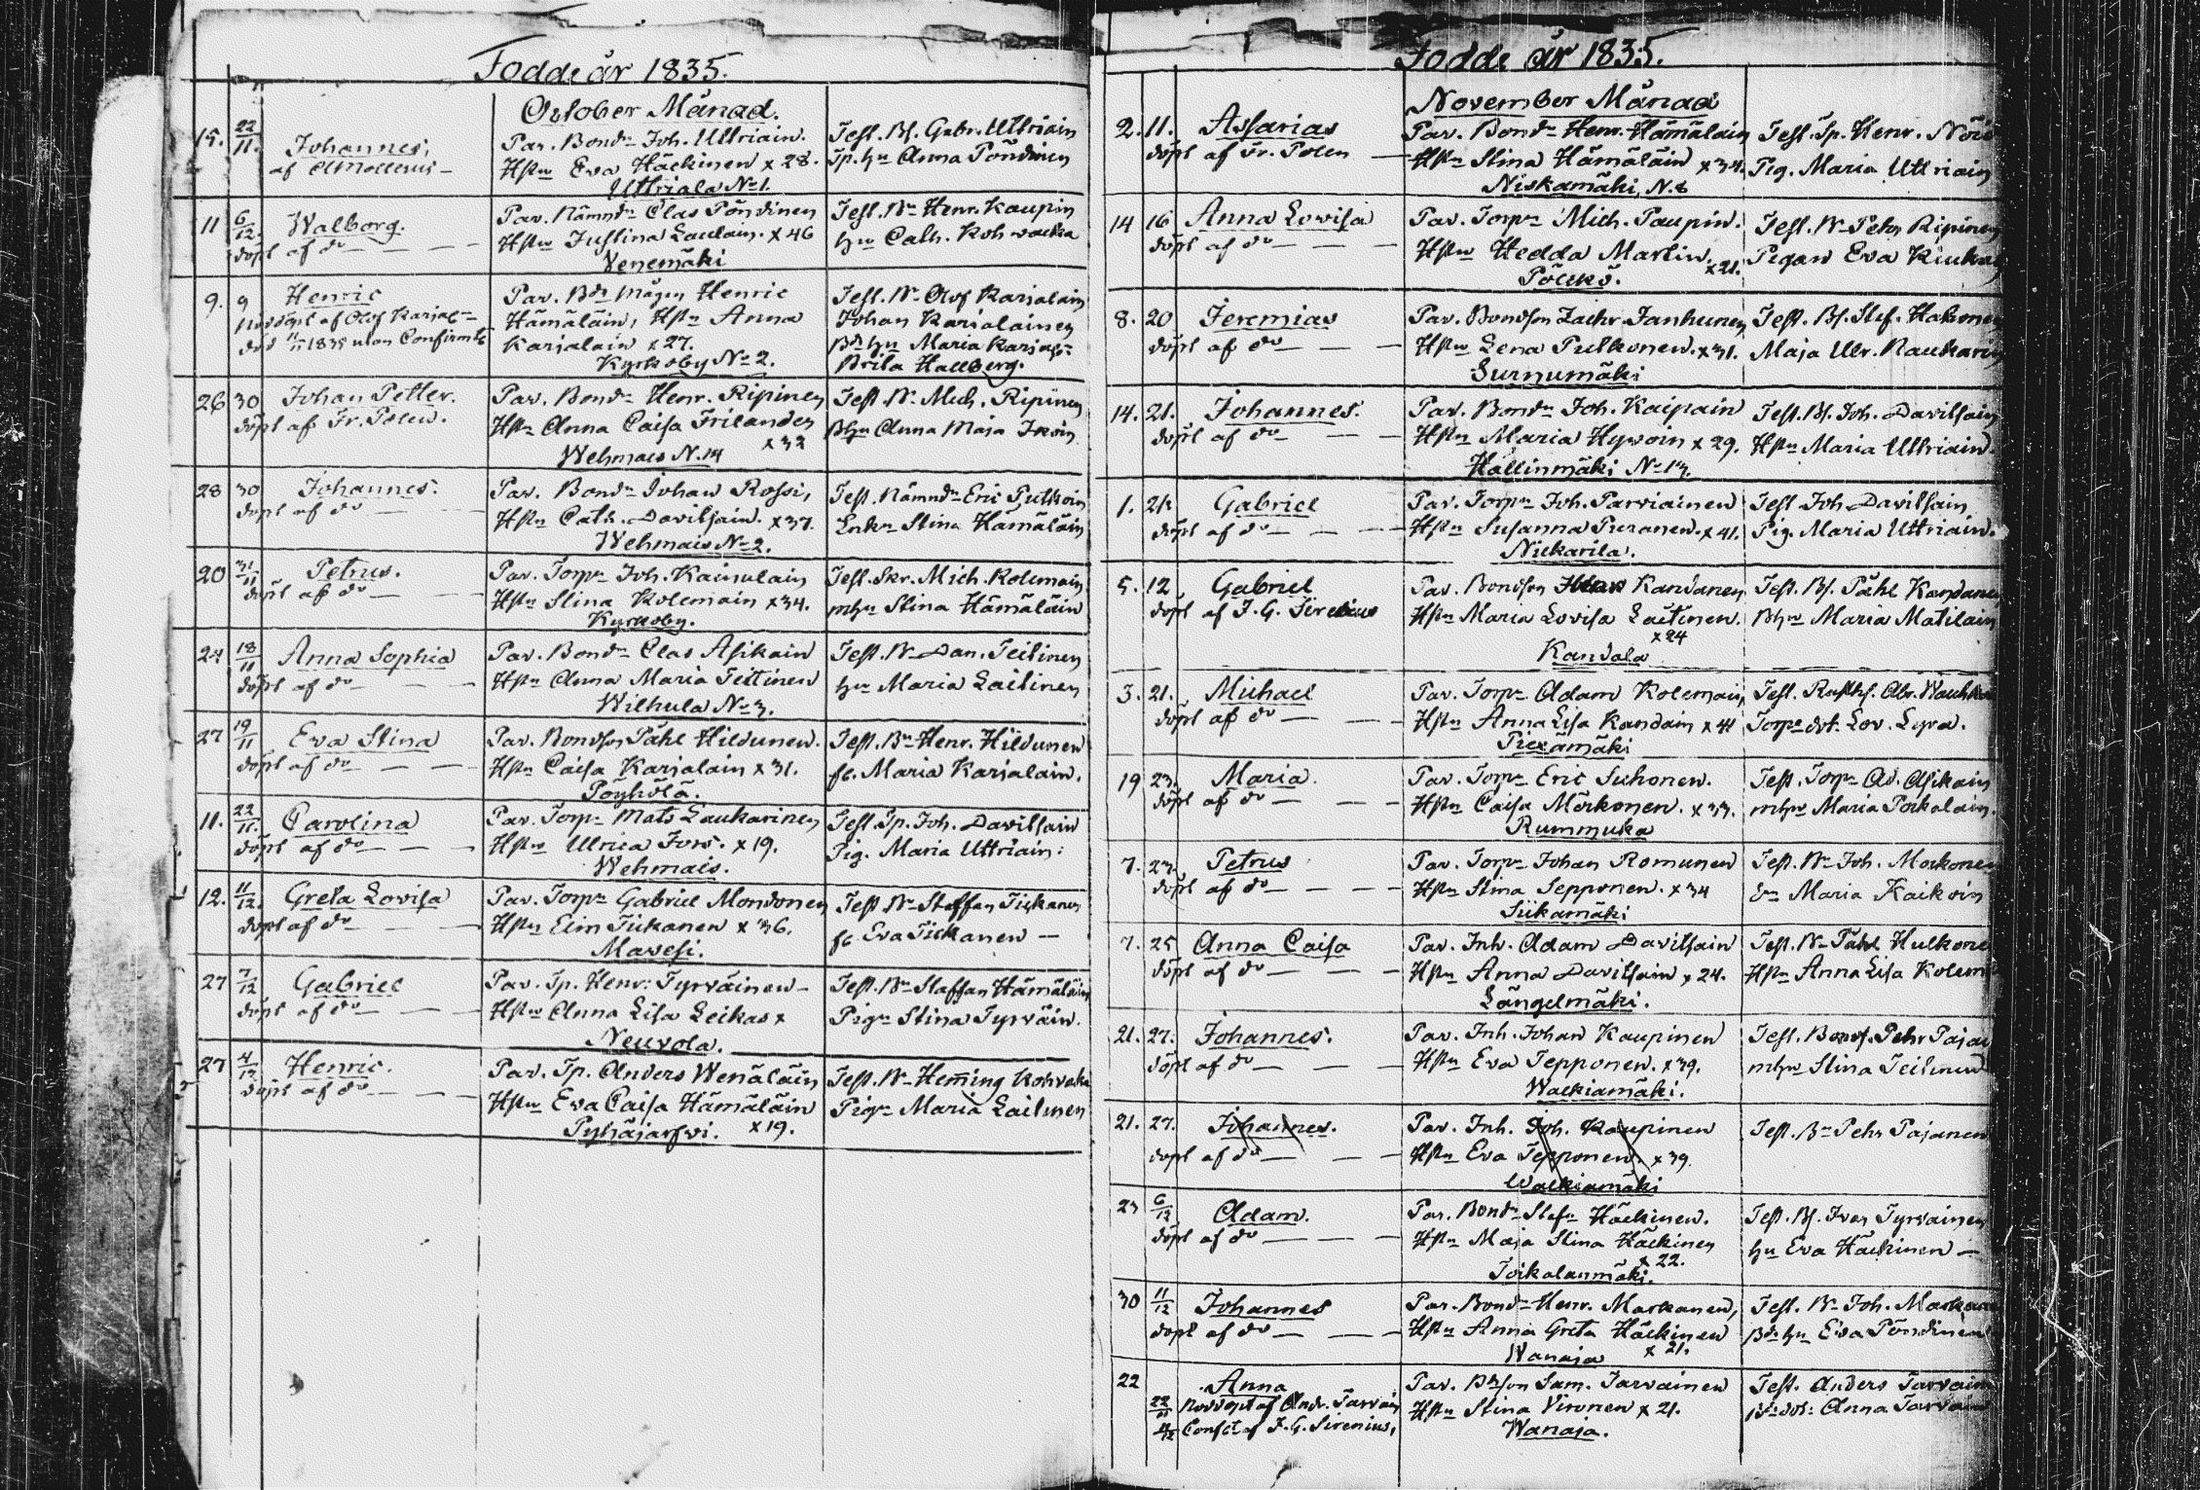 Födde år 1835.
October Månad.
15. 22/11. Johannes,
af Mollerus —
Par. Bondn Joh. Uttriain.
Hstn Eva Häckinen x 28.
Uttriala No 1.
Test. Bs. Gabr. Uttriain
Tp. hn Anna Pöndinen
11 6/12. Walborg.
döpt af do — — —
Par. Nämndn Clas Pöndinen
Hstn Justina Laulain. x 46
Venemäki
Test. Bn Henr. Kaupin
hn Cath. Kohvacka
9. 9 Henric
Nöddöpt af Olof Karjal=
död /11 1835 utan Confirmt
Par. Bds Mågen Henric
Hämäläin, Hstn Anna
Karjalain x 27.
Kyrkoby No 2.
Test. Bn Olof Karjalain
Johan Karjalainen
Bds hn Maria Karjal=
Brita Hallberg.
26 30 Johan Petter.
döpt af Fr. Polen.
Par. Bondn Henr. Ripinen
Hstn Anna Caisa Frilander
x 33
Wehmais N. 14
Test Bn Mich. Ripinen
Bhn Anna Maja Ikoin
28 30 Johannes.
döpt af do — — —
Par. Bondn Johan Rossi,
Hstn Cath. Davitsain. x 37.
Wehmais No 2.
Test. Nämndn Eric Putkoin
Enkn Stina Hämäläin
20 31/11 Petrus.
döpt af do — — —
Par. Torpn Joh. Kainulain
Hstn Stina Kolemain x 34.
Kyrkoby.
Test. Skr. Mich. Kolemain
mhn Stina Hämäläin
24 18/11 Anna Sophia
döpt af do — — —
Par. Bondn Clas Asikain
Hstn Anna Maria Teitinen
Wilhula No 3.
Test. Bn Dan. Teitinen
hn Maria Laitinen
27 19/11 Eva Stina
döpt af do — — —
Par. Bondson Påhl Hildunen.
Hstn Caisa Karjalain x 31.
Pöyhölä.
Test. Bn Henr. Hildunen
fl. Maria Karjalain.
11. 22/11. Carolina
döpt af do — — —
Par. Torpn Mats Laukarinen
Hstn Ulrica Fors. x 19.
Wehmais.
Test. Tp. Joh. Davitsain
Pig. Maria Uttriain.
12. 11/12. Greta Lovisa
döpt af do — — —
Par. Torpn Gabriel Mondonen
Hstn Elin Tiikanen x 36.
Mavesi.
Test Bn Staffan Tiikanen
fl. Eva Tiikanen —
27 7/12 Gabriel
döpt af do — — —
Par. Tp. Henr. Tyrväinen —
Hstn Anna Lisa Leikas x
Neuvola.
Test. Bn Staffan Hämäläin
Pign Stina Tyrväin.
27 4/12 Henric.
döpt af do — — —
Par. Tp. Anders Wenäläin
Hstn Eva Caisa Hämäläin
Pyhäjärfwi. x 19.
Test. Bn Heming Kohvaka
Pign Maria Laitinen
Födde år 1835.
November Månad
2. 11. Assarias
döpt af Fr. Polen —
Par. Bondn Henr. Hämäläin
Hstn Stina Hämäläin x 34.
Niskamäki, N. 8
Test. Tp. Henr.
Pig. Maria Uttriain
14 16 Anna Lovisa
döpt af do — — —
Par. Torpn Mich. Paupin.
Hstn Hedda Martin.
x 21.
Pölckö.
Test. Bn Pehr Ripinen
Pigan Eva
8. 20 Jeremias
döpt af do — — —
Par. Bondson Zachr. Janhunen
Hstn Lena Putkonen. x 31.
Surnumäki
Test. Bs. Stef. Hakonen
Maja Ulr. Raukarin
14. 21. Johannes.
döpt af do — — —
Par. Bondn Joh. Kaipain
Hstn Maria Hyvoin x 29.
Hallinmäki No 13.
Test. Bs. Joh. Davitsain
Hstn Maria Uttriain.
1. 24 Gabriel
döpt af do — — —
Par. Torpn Joh. Parviainen
Hstn Susanna Puranen. x 41.
Nickarila.
Test Joh Davitsain
Pig. Maria Uttriain.
5. 12 Gabriel
döpt af J. G. Sirenius
Par. Bondson Kandanen
Hstn Maria Lovisa Laitinen.
x 24
Kandala
Test. Bs. Påhl Kandanen
Bhn Maria Matilain
3. 21. Michael
döpt af do — — —
Par. Torpn Adam Kolemain
Hstn Anna Lisa Kandain x 41
Piexämäki
Test. Rusths. Abr.
Torpe dot. Lov. Lyra.
19 23. Maria
döpt af do — — —
Par. Torpn Eric Suhonen.
Hstn Caisa Mörkonen. x 33.
Rummuka
Test. Torpn Ad. Asikain
mhn Maria Poikolain.
7. 23. Petrus
döpt af do — — —
Par. Torpn Johan Romunen
Hstn Stina Sepponen. x 34
Siikamäki
Test. Bn Joh. Morkonen
dn Maria Kaikoin
7. 25 Anna Caisa
döpt af do — — —
Par. Inh. Adam Davitsain
Hstn Anna Davitsain x 24.
Längelmäki.
Test. Bn Påhl Hulkonen
Hstn Anna Lisa Kolem
21. 27. Johannes.
döpt af do — — —
Par. Inh. Johan Kaupinen
Hstn Eva Tepponen. x 39.
Walkiamäki.
Test. Bonds. Pehr Pajan
mhn Stina Teitinen
21. 27. Johannes.
döpt af do — — —
Par. Inh. Joh. Kaupinen
Hstn Eva Tepponen. x 39.
Walkiamäki
Test. Bn Pehr Pajanen
23 6/12 Adam.
döpt af do — — —
Par. Bondn Stefn Häckinen.
Hstn Maja Stina Häckinen
x 22.
Toikalanmäki.
Test. Bs. Ivar Tyrväinen
hn Eva Häckinen —
30 11/12 Johannes
döpt af do — — —
Par. Bondn Henr. Markanen,
Hstn Anna Greta Häckinen
x 21.
Wanaja
Test. Bn Joh. Markan
Bds hn Eva Pöndinen
22 Anna
22/11 Nöddöpt af Andr. Tarvain
4/12 Confct af J. G. Sirenius,
Par. Bdson Sam. Tarvainen
Hstn Stina Vironen x 21.
Wanaja.
Test. Anders Tarvain
Bds dot. Anna Tarvain